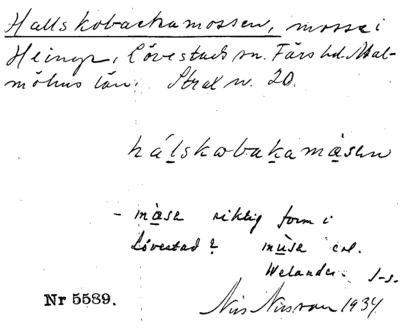 Hallskobackamossen, mosse i
Heinge, Lövestads sn. Färs hd. Mal-
möhus län. Strel n. 20.
hálskobakamåsen
- måsa riktig form i
Lövestad? mùsa enl.
Welander. I-s.
Nr 5589. Nils Nilsson 1934